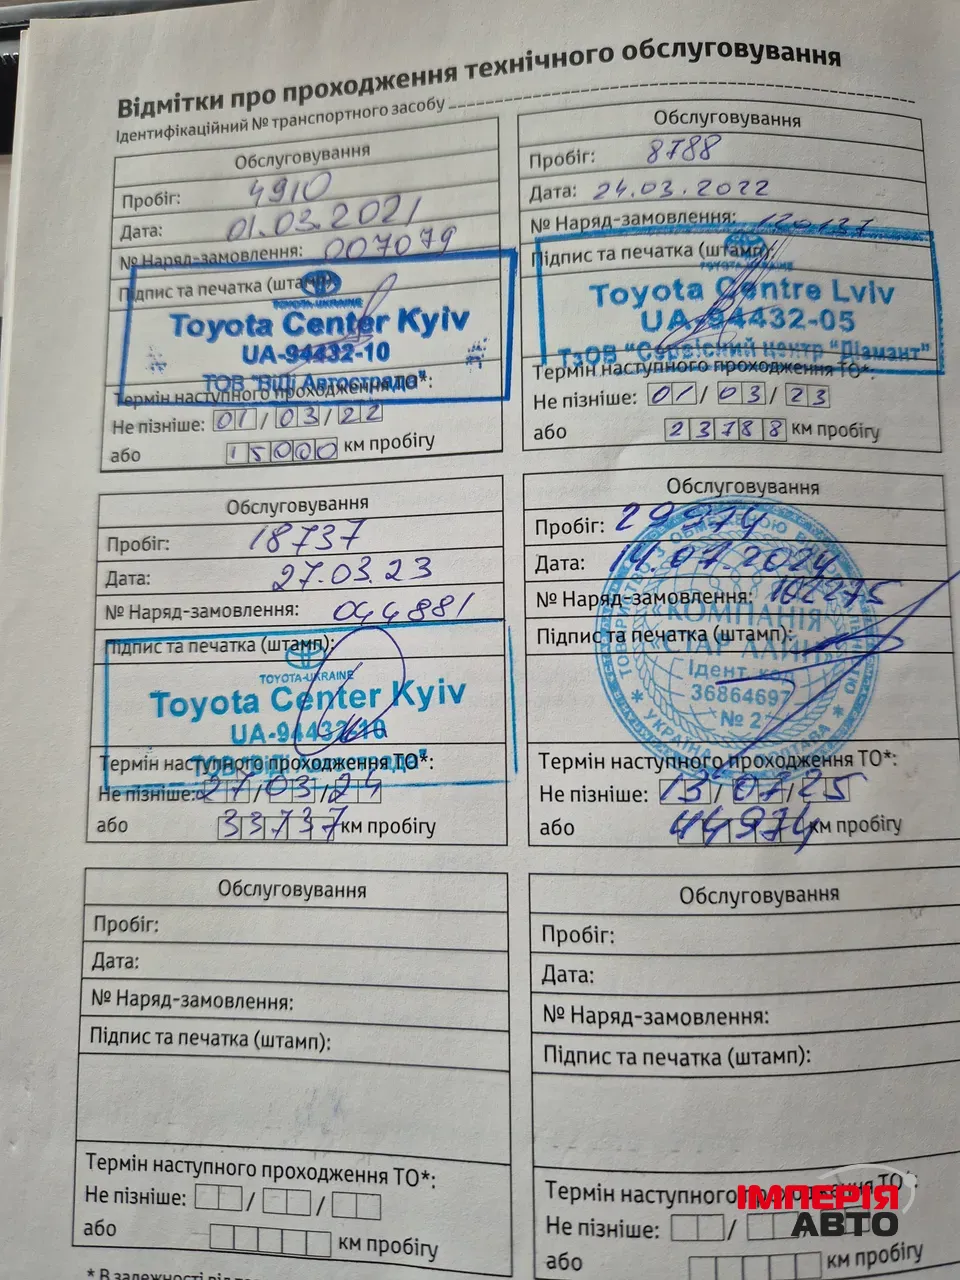 Відмітки про проходження технічного обслуговування
Ідентифікаційний № транспортного засобу
Обслуговування
Пробіг: 4910
Дата: 01.03.2021
№ Наряд-замовлення: 007079
Підпис та печатка (штамп):
TOYOTA-UKRAINE
Toyota Center Kyiv
UA-94432-10
ТОВ "ВІДІ Автострада"
Термін наступного проходження ТО*:
Не пізніше: 01/03/22
або 15000 км пробігу
Обслуговування
Пробіг: 8788
Дата: 24.03.2022
№ Наряд-замовлення: 120137
Підпис та печатка (штамп):
TOYOTA-UKRAINE
Toyota Centre Lviv
UA-94432-05
ТзОВ "Сервісний центр "Діамант"
Термін наступного проходження ТО*:
Не пізніше: 01/03/23
або 23788 км пробігу
Обслуговування
Пробіг: 18737
Дата: 27.03.23
№ Наряд-замовлення: 044881
Підпис та печатка (штамп):
TOYOTA-UKRAINE
Toyota Center Kyiv
UA-94432-10
Термін наступного проходження ТО*:
Не пізніше: 27/03/24
або 33737 км пробігу
Обслуговування
Пробіг: 29974
Дата: 14.07.2024
№ Наряд-замовлення: 102275
Підпис та печатка (штамп):
«КОМПАНІЯ
«СТАР ЛАЙН»
Ідент. код
36864697
№ 2
УКРАЇНА
Термін наступного проходження ТО*:
Не пізніше: 13/07/25
або 44974 км пробігу
Обслуговування
Пробіг:
Дата:
№ Наряд-замовлення:
Підпис та печатка (штамп):
Термін наступного проходження ТО*:
Не пізніше: / /
або км пробігу
Обслуговування
Пробіг:
Дата:
№ Наряд-замовлення:
Підпис та печатка (штамп):
Термін наступного проходження ТО*:
Не пізніше: /
або км пробігу
ІМПЕРІЯ
АВТО